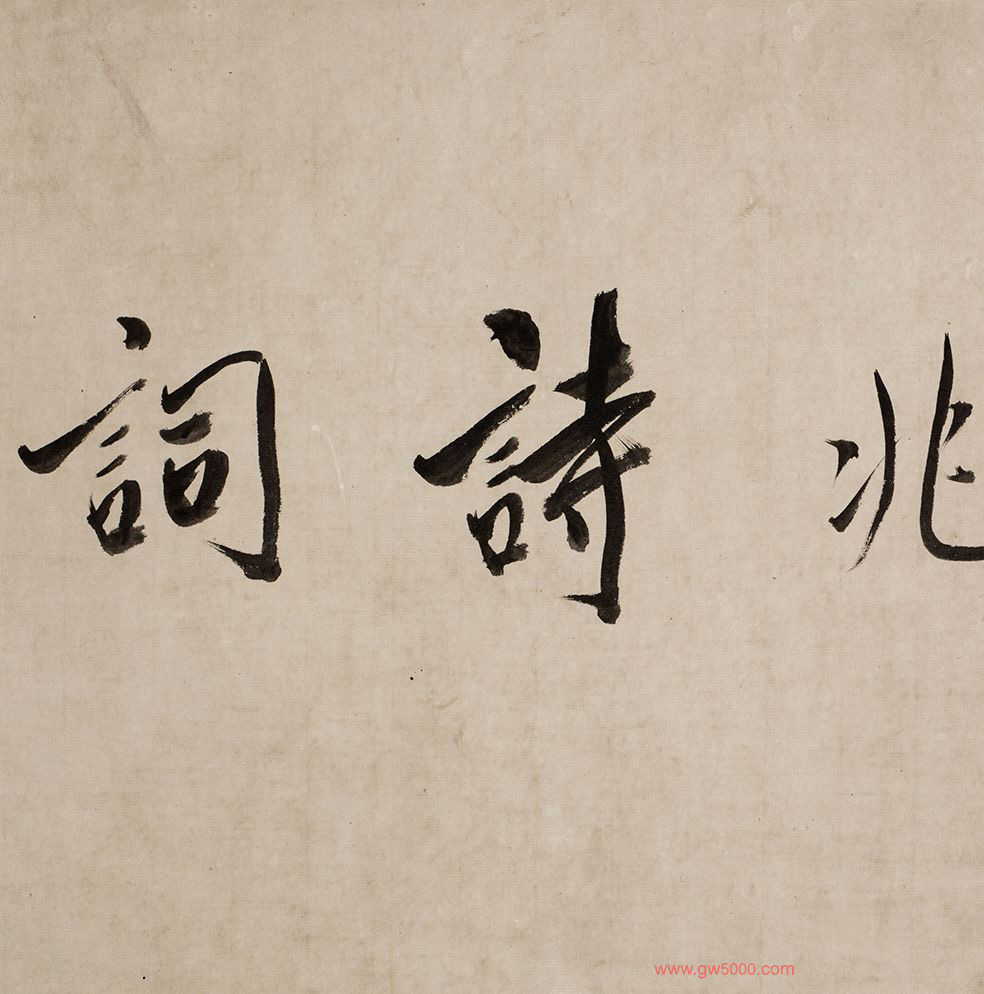 兆詩詞
www.gw5000.com